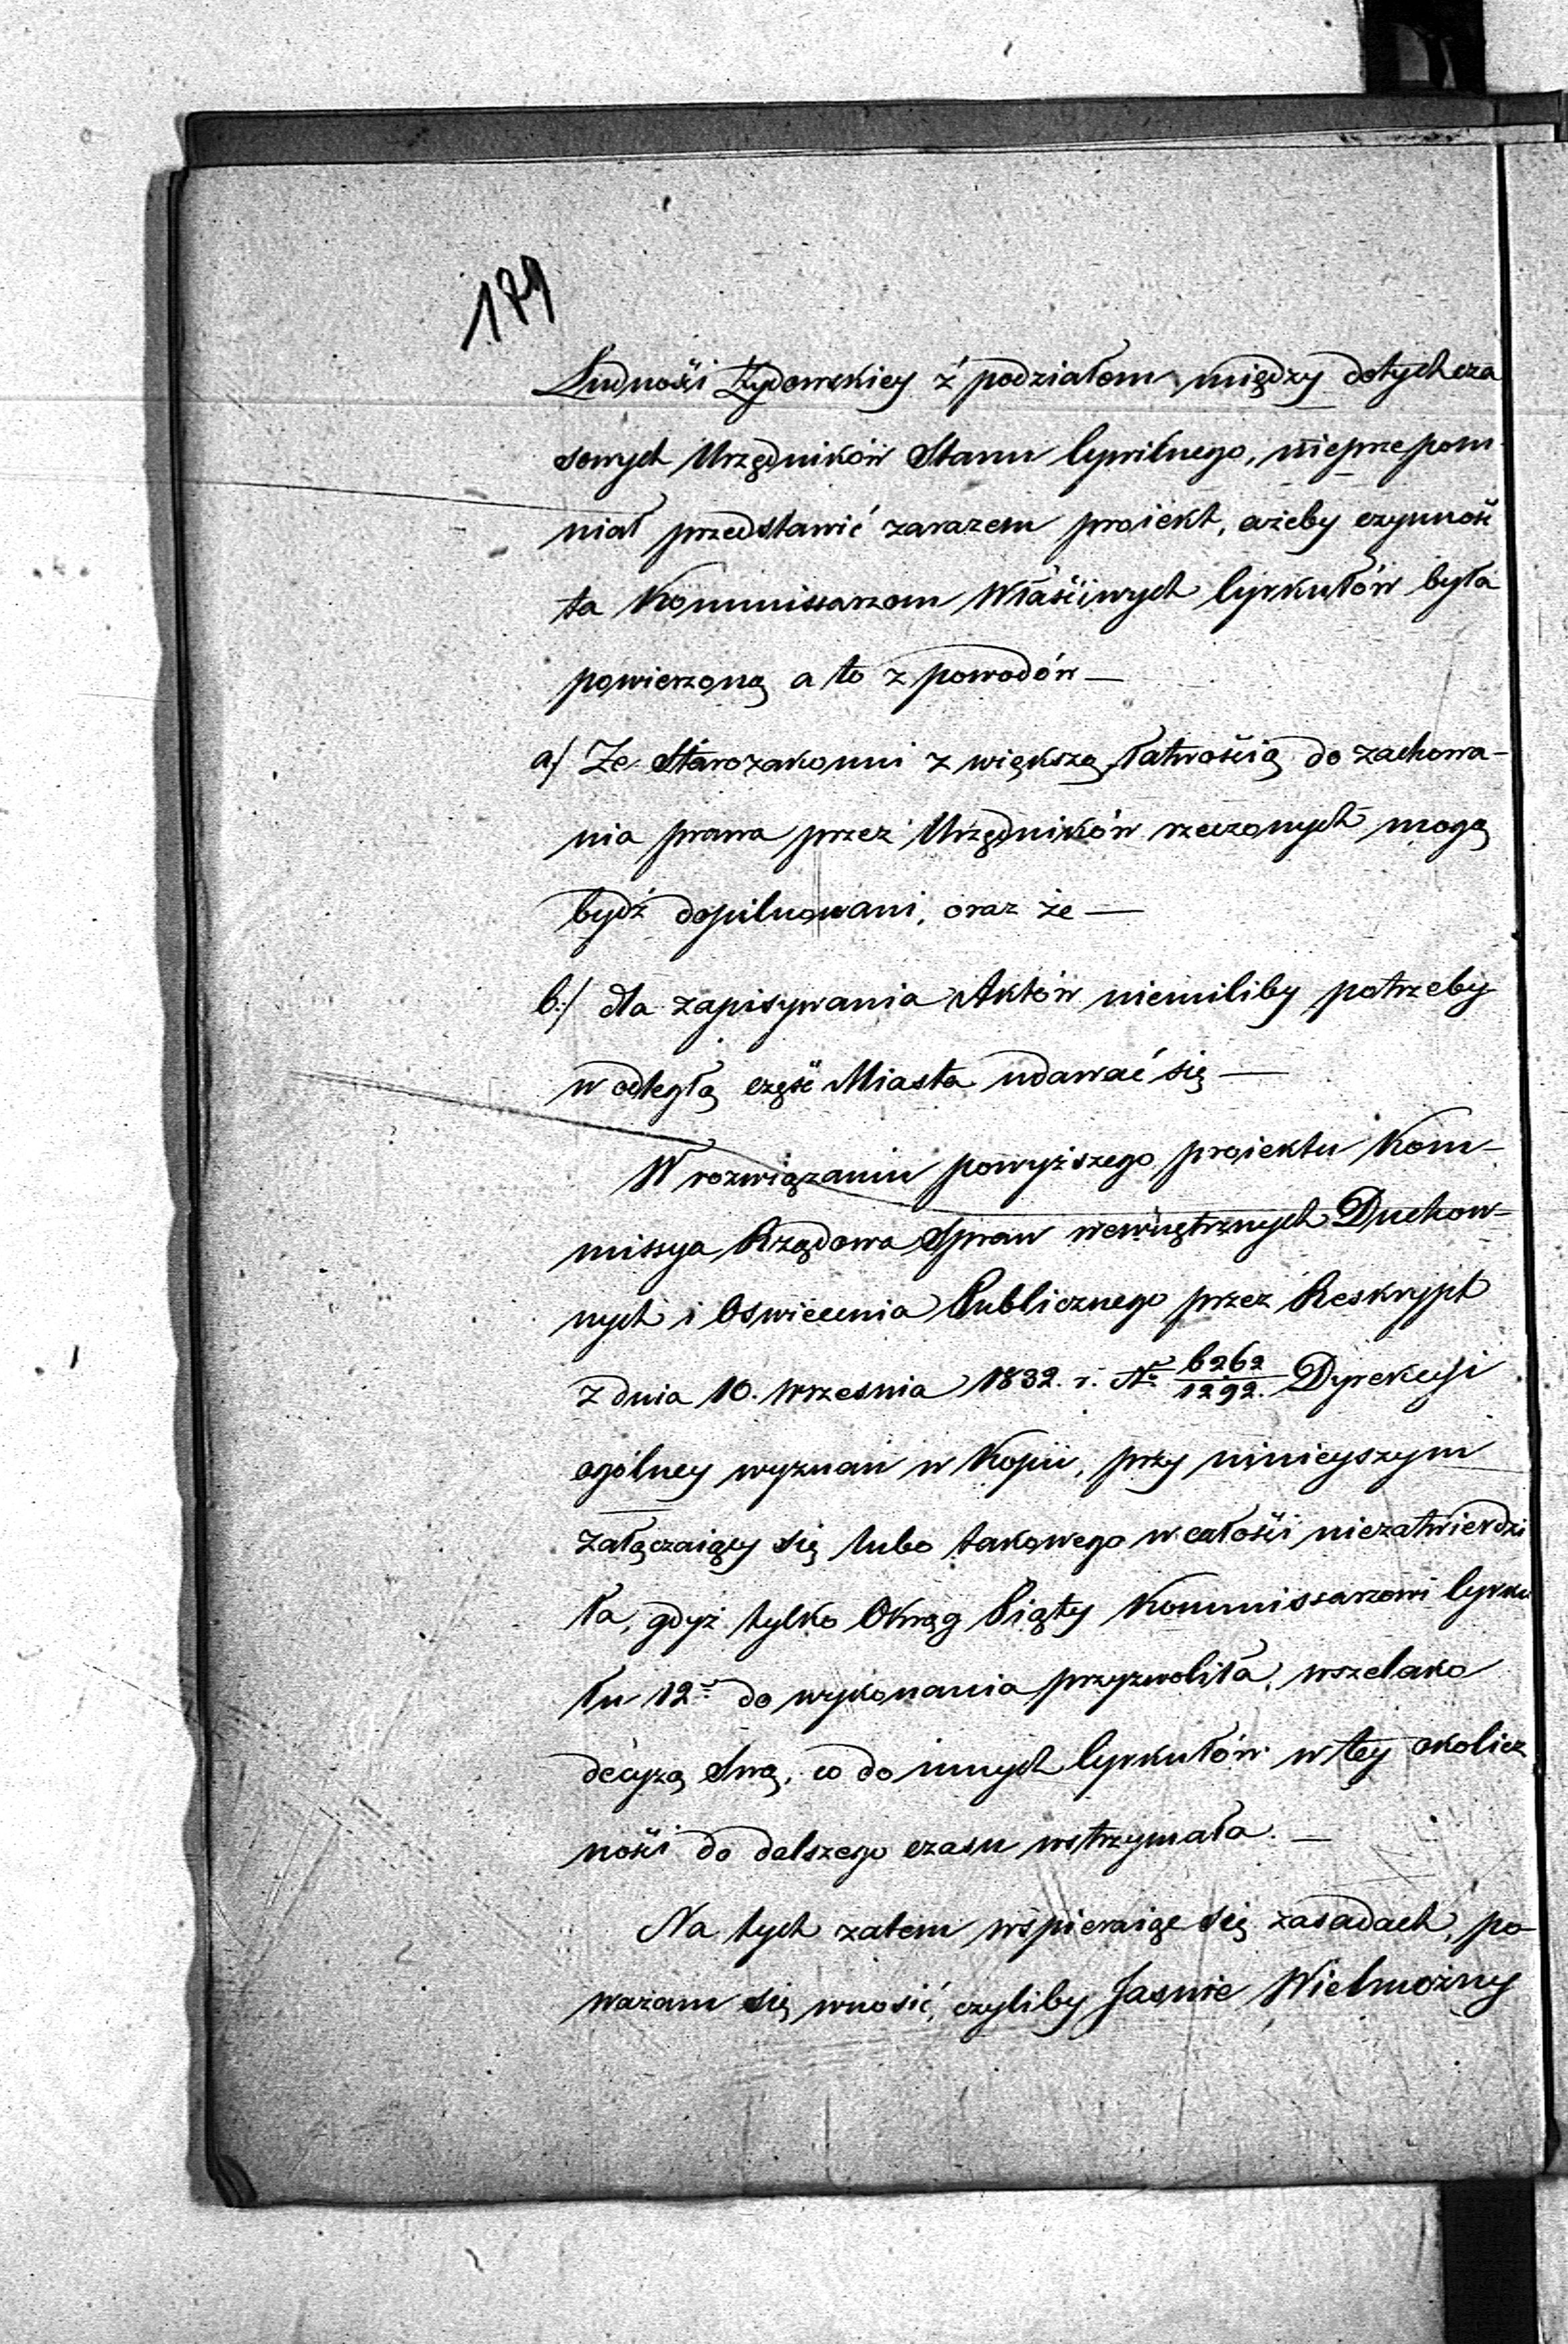 179
Ludnośći Żydowskiey z podziałem między dotychcza
sowych Urzędników Stanu Cywilnego, nieprzepom-
niał przedstawić zarazem proiekt, ażeby czynność
ta Kommissarzom Właśćiwych Cyrkułów była
powierzoną a to z powodów —
a/ Że Starozakonni z większą łatwośćią do zachowa-
nia prawa przez Urzędników rzeczonych mogą
bydź dopilnowani, oraz że —
b:/ dla zapisywania Aktów niemiliby potrzeby
w odległą część Miasta udawać się —
W rozwiązaniu powyższego proiektu Kom-
missya Rządowa Spraw wewnętrznych Duchow-
nych i Oswiecenia Publicznego przez Reskrypt
z dnia 10. Wrzesnia 1832. r. No 6262/1292. Dyrekcyi
ogólney wyznań w Kopii, przy ninieyszym
załączaiący się lubo takowego w całośći niezatwierdzi
ła, gdyż tylko Okrąg Piąty Kommissarzowi Cyrku
łu 12o do wykonania przyzwoliła, wszelako
decyzą Swą, co do innych Cyrkułów w tey okolicz
nośći do dalszego czasu wstrzymała. —
Na tych zatem wspieraiąc się zasadach, po-
ważam się wnosić, czyliby Jaśnie Wielmożny